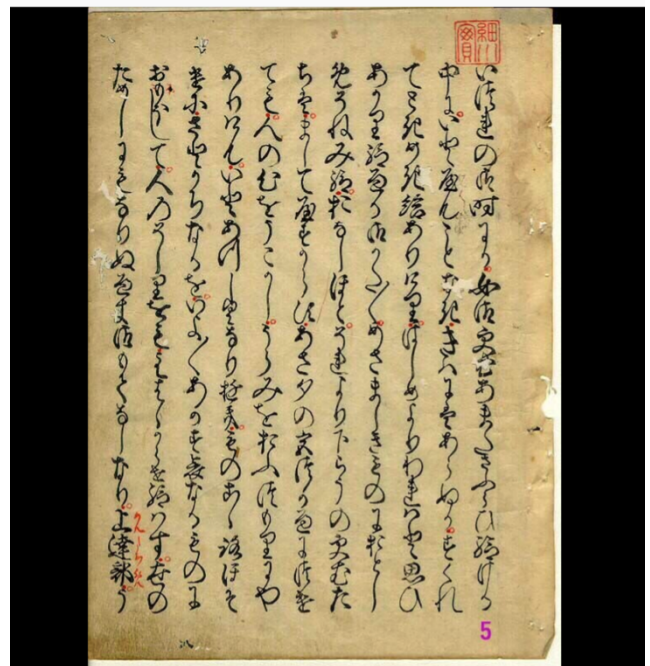 いつれの御時にか女御更衣あまたさふらひ給ける
中にいとやんことなききはにはあらぬかすくれ
てときめき給ありけりはしめよりわれはと思ひ
あかり給へる御かた〳〵めさましきものにおとし
めそねみ給おなしほとそれより下らうの更いた
ちはましてやすからすあさ夕の宮つかへにつけ
ても人の心をうこかしうらみをおふつもりにや
ありけんいとあつしくなり行ものこゝろほそ
けにさとかちなるをいよ〳〵あかすあはれなるものに
おもほして人のそしりをもえはゝからせ給はす世の
ためしにもなりぬへき御もてなしなり上達部う
5